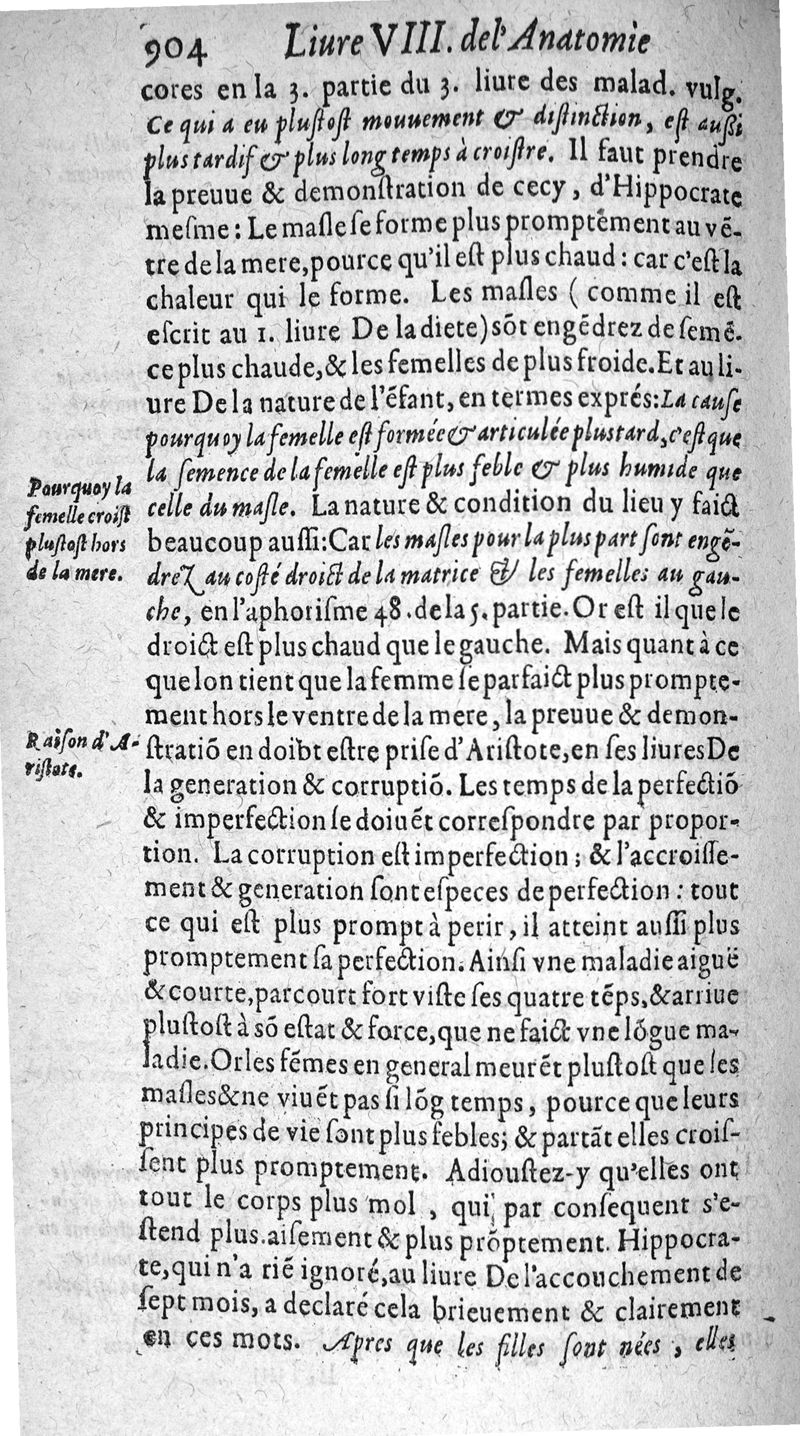 904 Liure VIII. de l'Anatomie
cores en la 3. partie du 3. liure des malad. vulg.
Ce qui a eu pluſtoſt mouuement & diſtinction, eſt auſſi
plus tardif & plus long temps à croiſtre. Il faut prendre
la preuue & demonſtration de cecy, d'Hippocrate
meſme: Le maſle ſe forme plus promptement au vē-
tre de la mere, pource qu'il eſt plus chaud: car c'eſt la
chaleur qui le forme. Les maſles (comme il eſt
eſcrit au 1. liure De la diete) sōt engēdrez de ſemē-
ce plus chaude, & les femelles de plus froide. Et au li-
ure De la nature de l'ēfant, en termes exprés: La cauſe
pourquoy la femelle eſt formée & articulée plus tard, c'eſt que
la ſemence de la femelle eſt plus feble & plus humide que
celle du maſle. La nature & condition du lieu y faict
beaucoup auſſi: Car les maſles pour la plus part ſont engē-
drez au coſté droict de la matrice & les femelles au gau-
che, en l'aphoriſme 48. de la 5. partie. Or eſt il que le
droict eſt plus chaud que le gauche. Mais quant à ce
que lon tient que la femme ſe parfaict plus prompte-
ment hors le ventre de la mere, la preuue & demon-
ſtratiō en doibt eſtre priſe d'Ariſtote, en ſes liures De
la generation & corruptiō. Les temps de la perfectiō
& imperfection ſe doiuēt correſpondre par propor-
tion. La corruption eſt imperfection; & l'accroiſſe-
ment & generation ſont eſpeces de perfection: tout
ce qui eſt plus prompt à perir, il atteint auſſi plus
promptement ſa perfection. Ainſi vne maladie aiguë
& courte, parcourt fort viſte ſes quatre tēps, & arriue
pluſtoſt à sō eſtat & force, que ne faict vne lōgue ma-
ladie. Or les fēmes en general meurēt pluſtoſt que les
maſles & ne viuēt pas ſi lōg temps, pource que leurs
principes de vie ſont plus febles; & partāt elles croiſ-
ſent plus promptement. Adiouſtez-y qu'elles ont
tout le corps plus mol, qui par conſequent s'e-
ſtend plus aiſement & plus prōptement. Hippocra-
te, qui n'a riē ignoré, au liure De l'accouchement de
ſept mois, a declaré cela brieuement & clairement
en ces mots. Apres que les filles ſont nées, elles
Pourquoy la
femelle croiſt
pluſtoſt hors
de la mere.
Raiſon d'A-
riſtote.